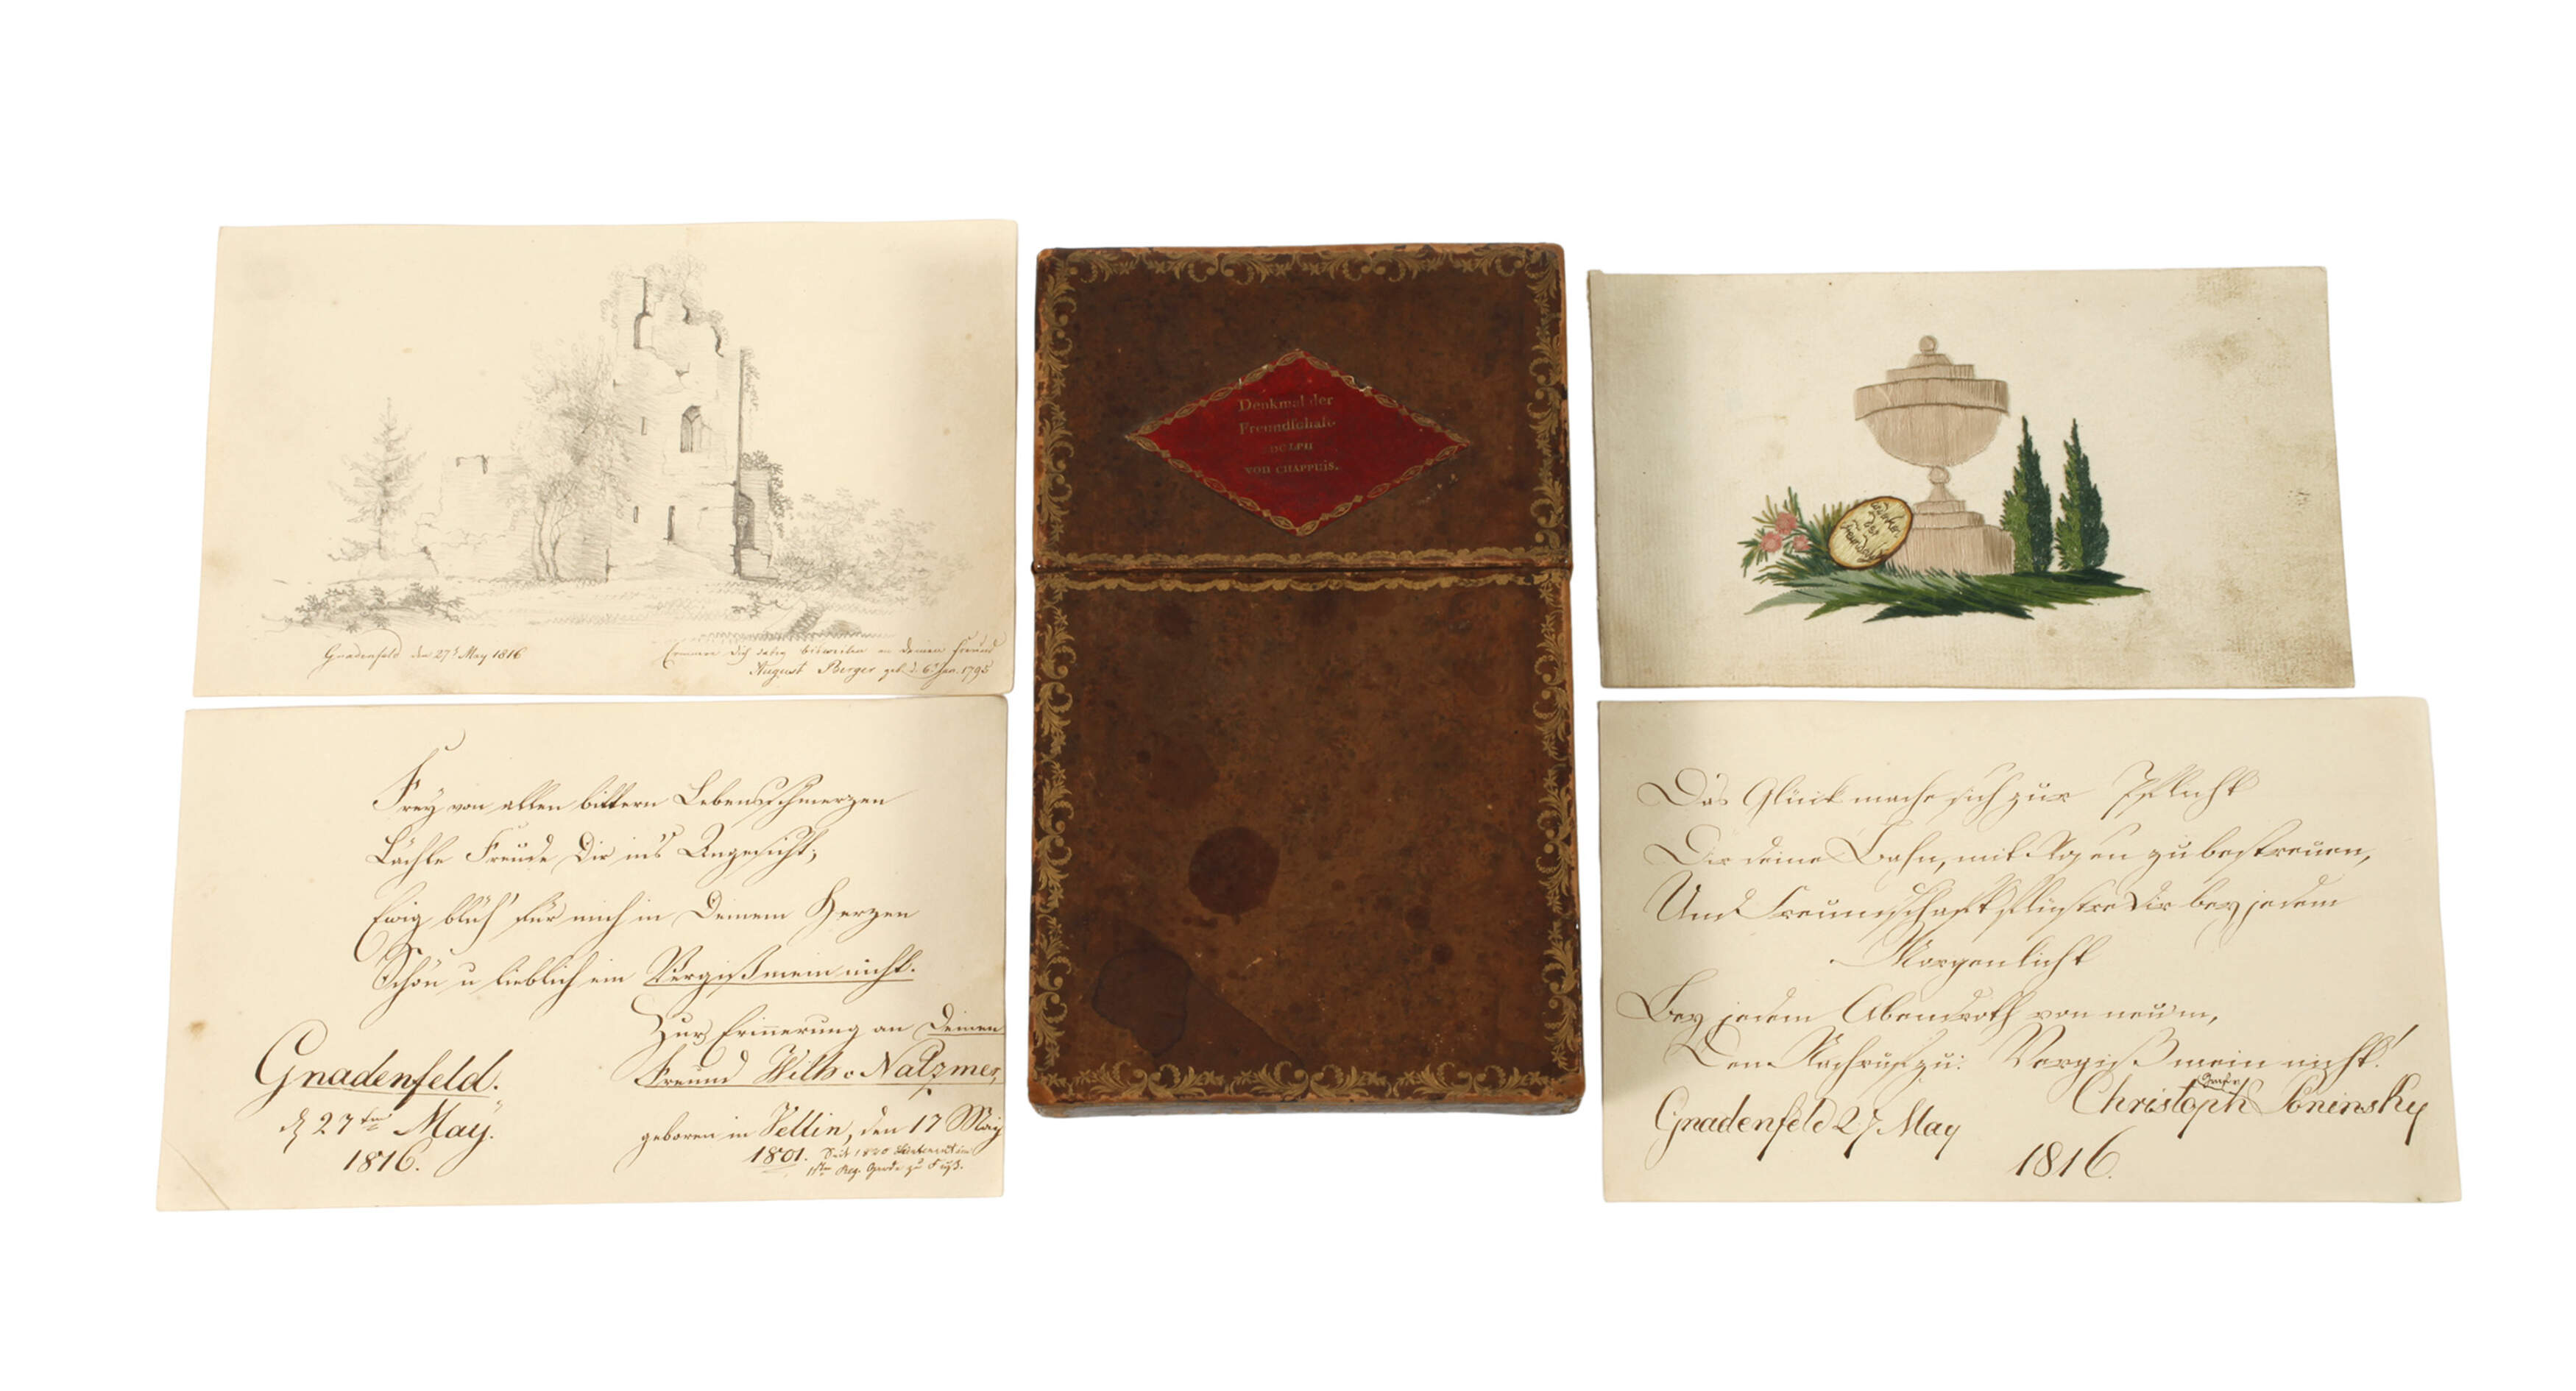 Gnadenfeld den 27t May 1816
Erinnere Dich dabey bisweilen an deinen Freund
August Berger geb. d. 6t Jan. 1795
Frey von allen bittern Lebensschmerzen
Lächle Freude Dir ins Angesicht;
Ewig blüh' für mich in Deinem Herzen
Schön u lieblich ein Vergißmeinnicht.
Zur Erinnerung an Deinen
Freund Wilh v Natzmer,
geboren in Vellin, den 17 May
1801. Seit 1820 Lieutenant im
1sten Reg. Garde zu Fuß.
Gnadenfeld.
d 27ten May.
1816.
Denkmal der
Freundschaft
DOLPH
VON CHAPPUIS.
der
Das Glück mache sich zur Pflicht
Dir deine Bahn, mit Rosen zu bestreuen,
Und Freundschaft flüstre Dir bey jedem
Morgenlicht
Bey jedem Abendroth von neuen,
Den Nachruf zu: Vergiß mein nicht!
Christoph Poninsky
Gnadenfeld 27 May
1816.